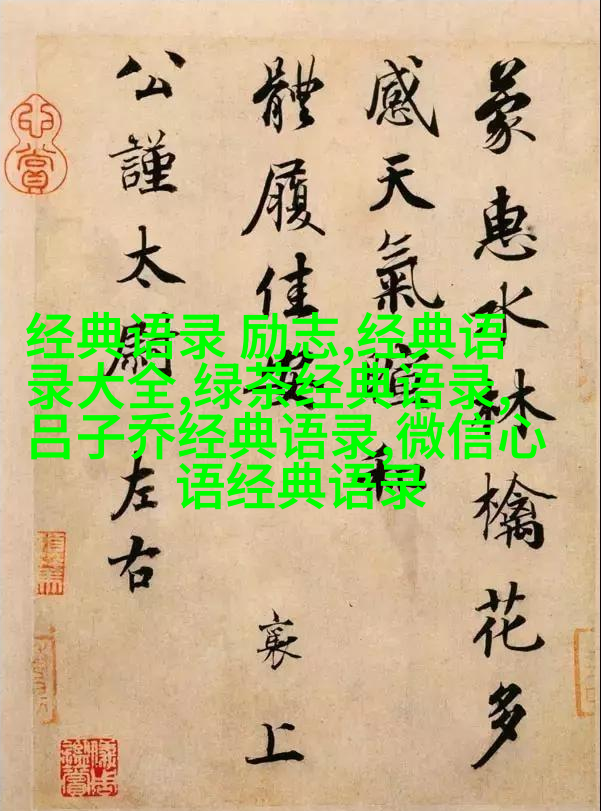 蒙惠水林檎花多
感天氣暄和
體履佳安
襄上
公謹太尉左右
经典语录 励志,经典语
录大全,绿茶经典语录,
吕子乔经典语录,微信心
语经典语录